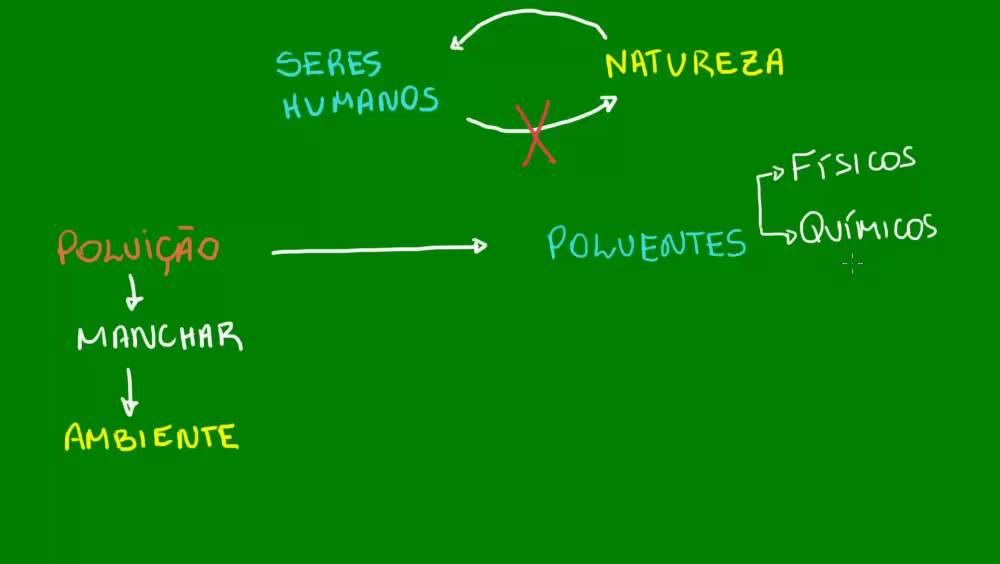 SERES
HUMANOS
NATUREZA
FÍSICOS
POLUIÇÃO
POLUENTES
QUÍMICOS
MANCHAR
AMBIENTE